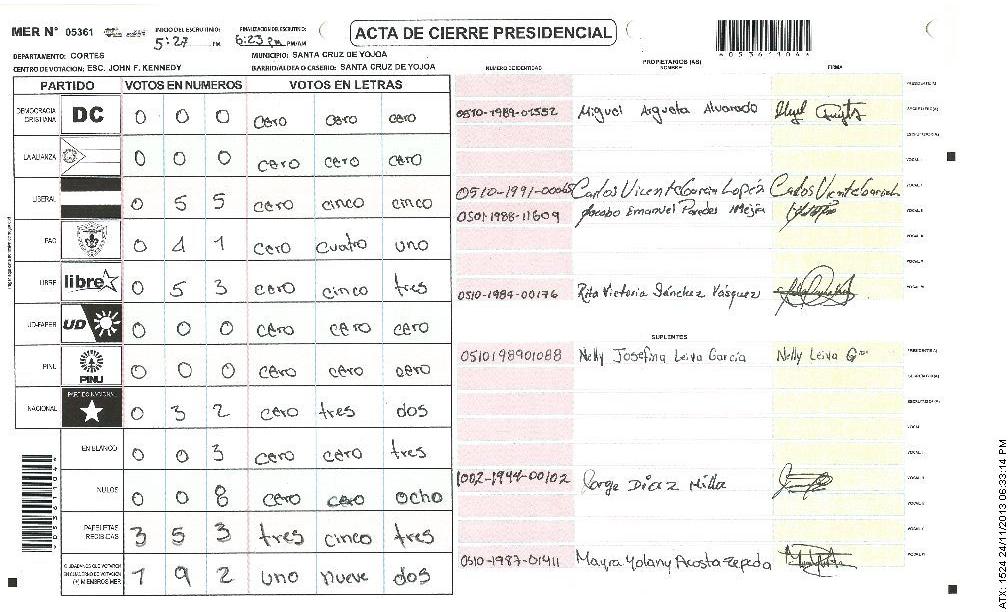 MER N° 05361
INICIO DEL ESCRUTINIO: 5:27 PM
FINALIZACION DE ESCRUTINIO: 6:23 pm PM/AM
ACTA DE CIERRE PRESIDENCIAL
DEPARTAMENTO: CORTES
MUNICIPIO: SANTA CRUZ DE YOJOA
CENTRO DE VOTACION: ESC. JOHN F. KENNEDY
BARRIO/ALDEA O CASERIO: SANTA CRUZ DE YOJOA
PARTIDO VOTOS EN NUMEROS VOTOS EN LETRAS
DEMOCRACIA CRISTIANA DC 0 0 0 cero cero cero
LA ALIANZA 0 0 0 cero cero cero
LIBERAL 0 5 5 cero cinco cinco
PAC 0 4 1 cero cuatro uno
LIBRE libre 0 5 3 cero cinco tres
UD-FAPER UD 0 0 0 cero cero cero
PINU PINU 0 0 0 cero cero cero
NACIONAL PARTIDO NACIONAL 0 3 2 cero tres dos
EN BLANCO 0 0 3 cero cero tres
NULOS 0 0 8 cero cero ocho
PAPELETAS RECIBIDAS 3 5 3 tres cinco tres
CIUDADANOS QUE VOTARON EN CUADERNO DE VOTACION (+) MIEMBROS MER 1 9 2 uno nueve dos
NUMERO DE IDENTIDAD
PROPIETARIOS (AS)
NOMBRE
FIRMA
0510-1989-01552 Miguel Argueta Alvarado
0510-1991-00065 Carlos Vicente Garcia Lopéz Carlos Vicente Garcia L
0501-1988-11609 Jacobo Emanuel Paredes Mejia
0510-1984-00176 Rita Victoria Sánchez Vásquez
SUPLENTES
0510198901088 Nelly Josefina Leiva García Nelly Leiva G
1002-1944-00102 Jorge Diaz Milla
0510-1987-01411 Mayra Yolany Acosta Zepeda
ATX: 1524 24/11/2013 06:33:14 PM